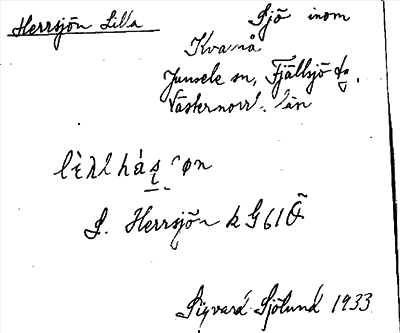 Herrsjön Lilla
Sjö inom
Kvarnå
Junsele sn, Fjällsjö
Västernorrl. län
S. Herrsjön k G61
Sigvard Sjölund 1933